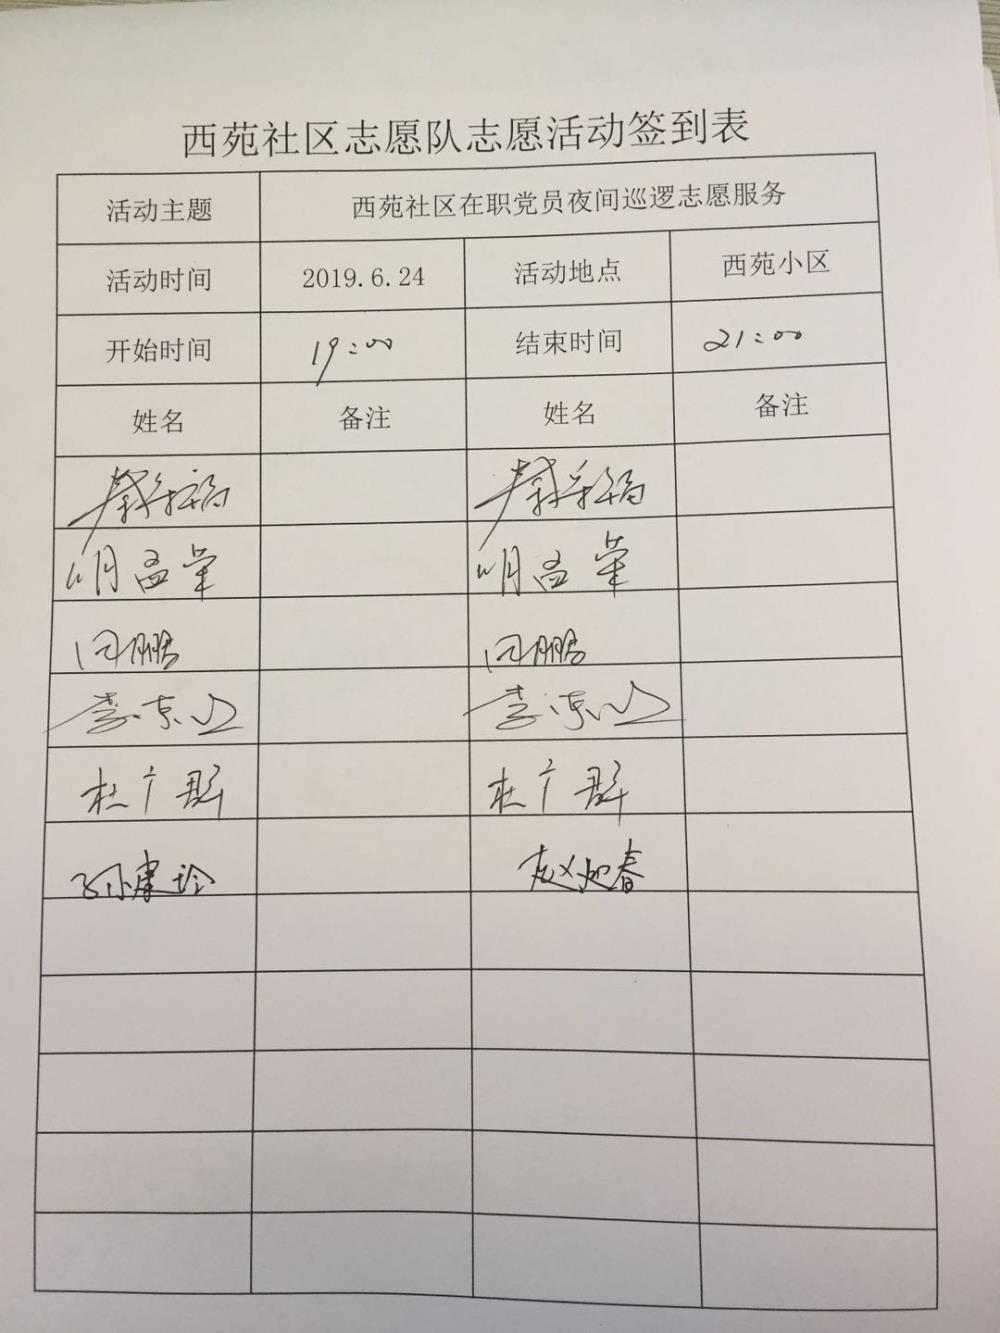 西苑社区志愿队志愿活动签到表
活动主题 西苑社区在职党员夜间巡逻志愿服务
活动时间 2019.6.24 活动地点 西苑小区
开始时间 19:00 结束时间 21:00
姓名 备注 姓名 备注
明孟荣 明孟荣
闫鹏 闫鹏
杜广群 杜广群
孙建玲 赵迎春